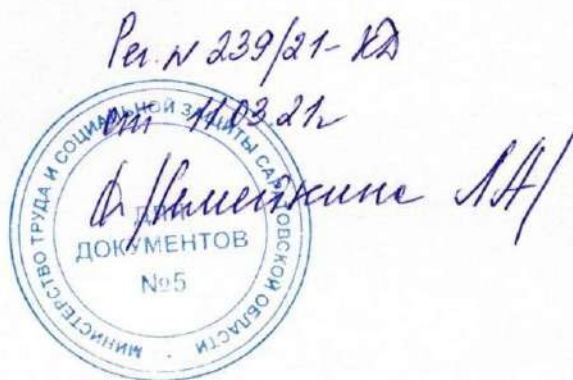 Рег. № 239/21-КД
от 11.03.21г
МИНИСТЕРСТВО ТРУДА И СОЦИАЛЬНОЙ ЗАЩИТЫ САРАТОВСКОЙ ОБЛАСТИ
ДЛЯ
ДОКУМЕНТОВ
№5